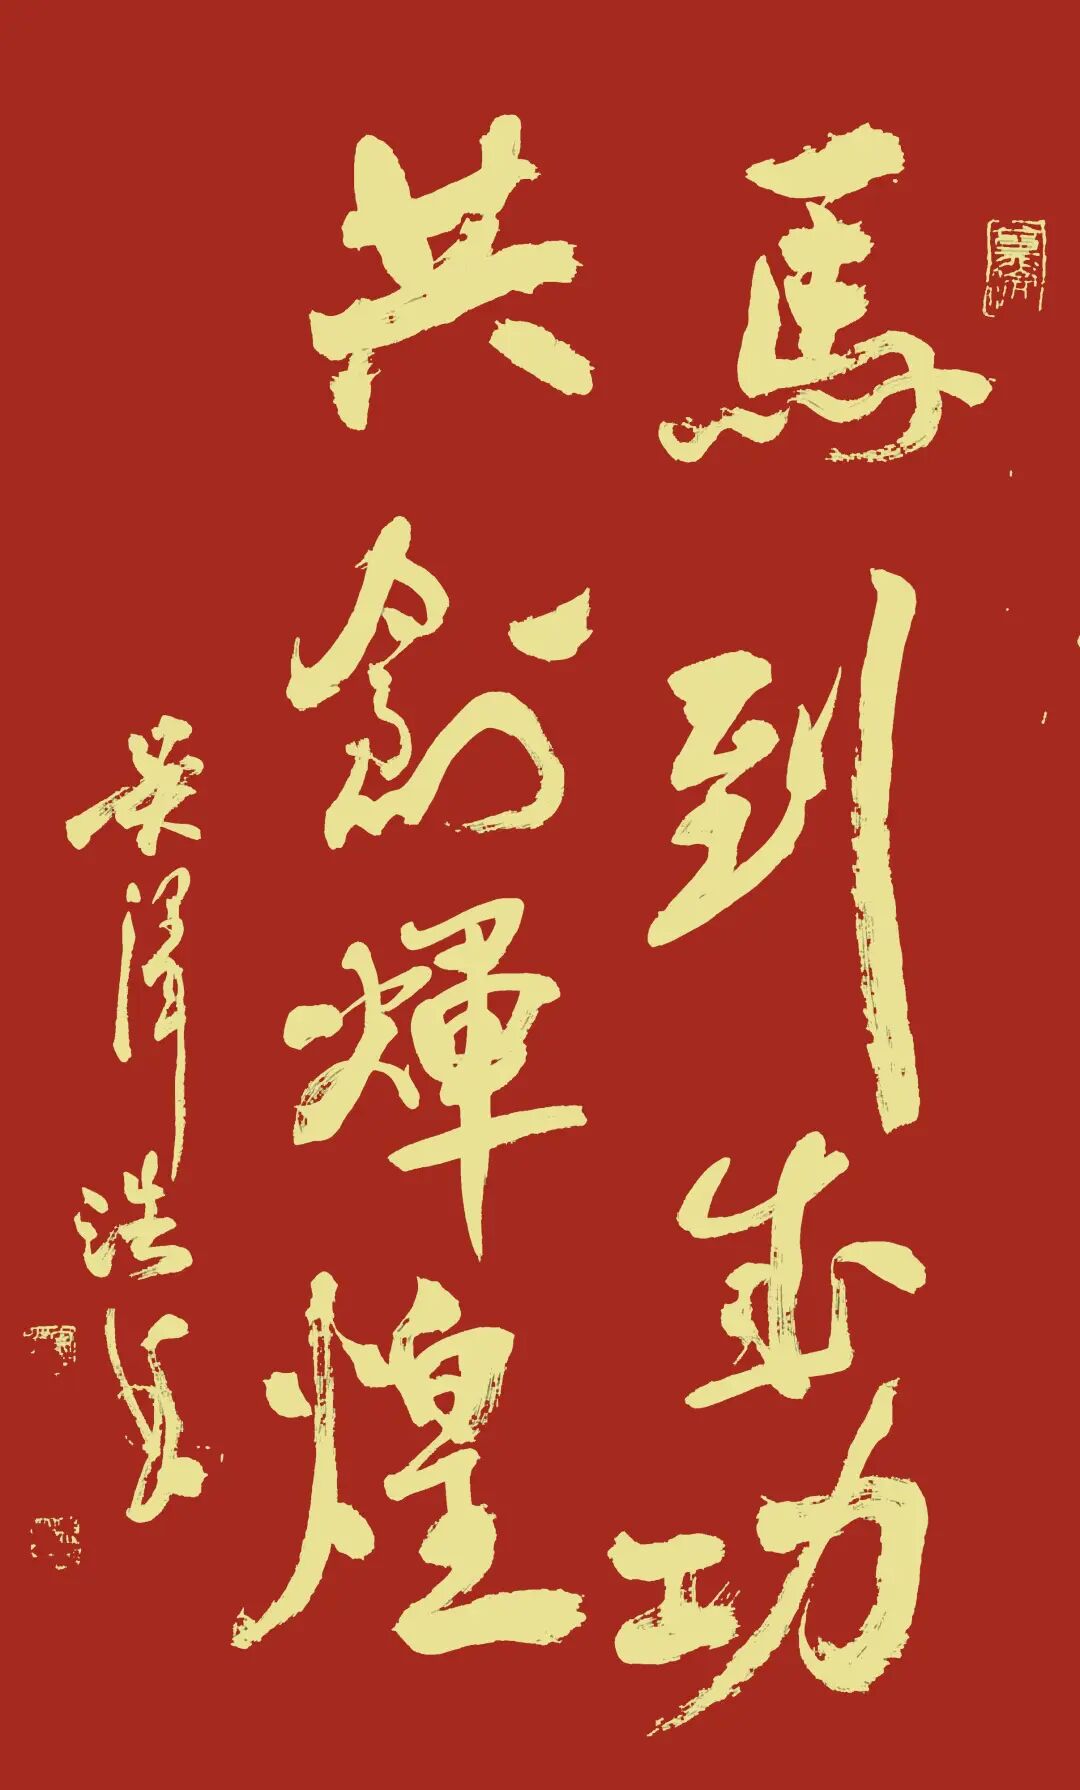 馬到成功
共創輝煌
吴澤浩書